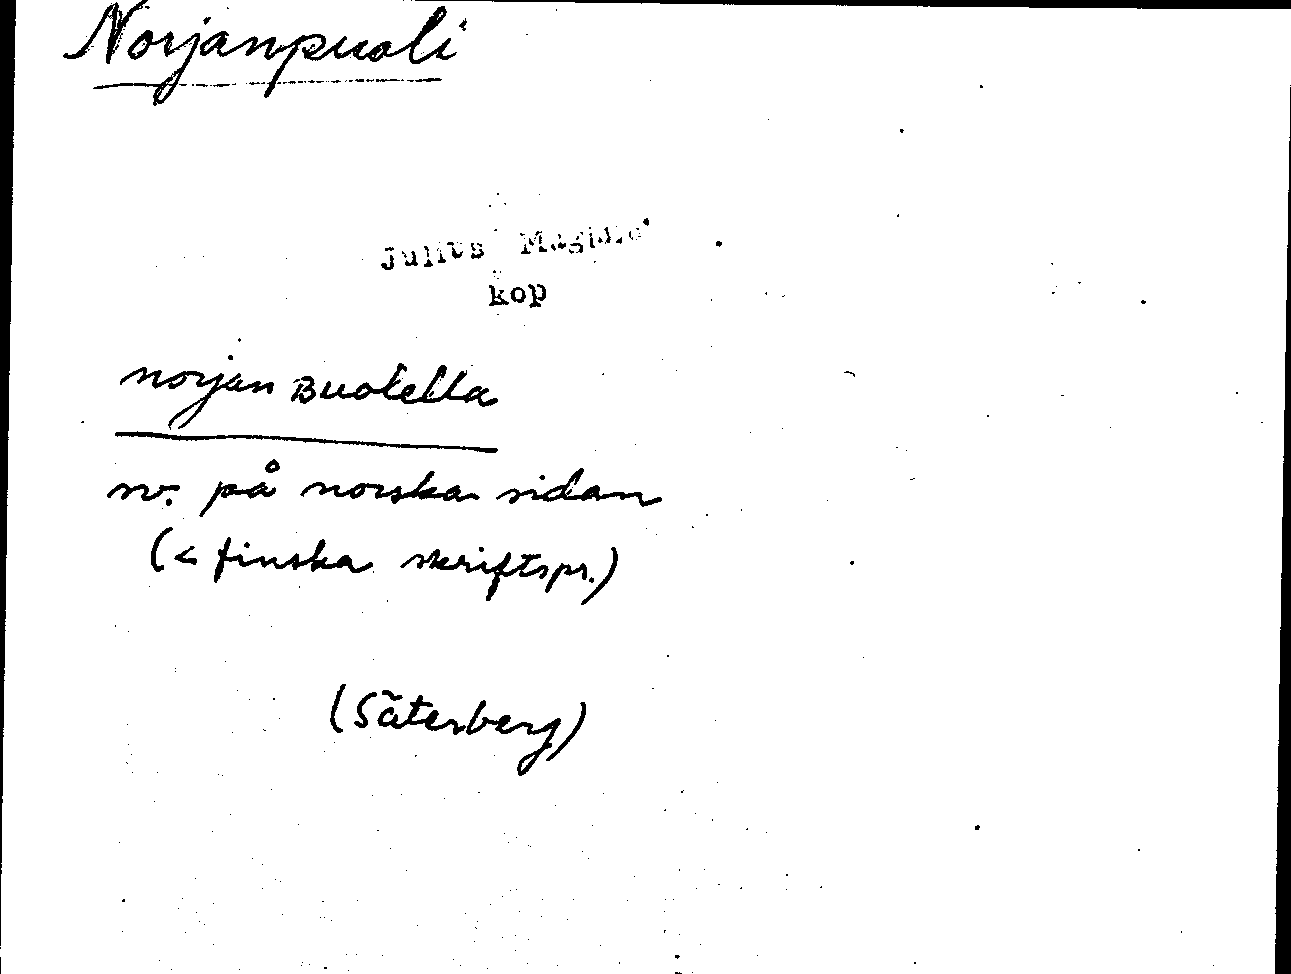 Norjanpuoli
Julius Mägiste
kop
norjan ʙuolella
sv. på norska sidan
(< finska skriftspr.)
(Säterberg)